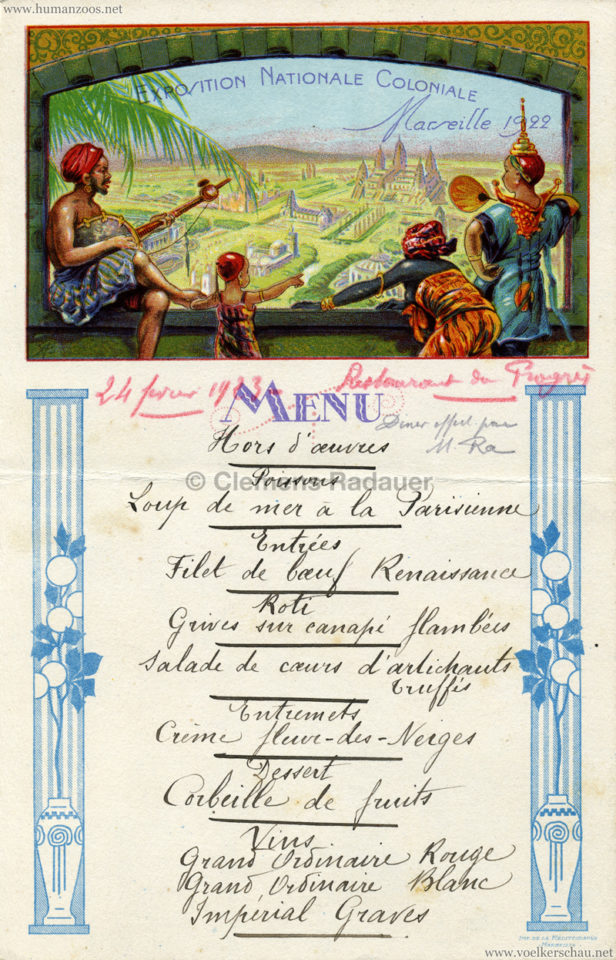 www.humanzoos.net
EXPOSITION NATIONALE COLONIALE
Marseille 1922
24 fevrier 1923 Restaurant du Progrès
MENU
Diner offert par
M. Ra
Hors d'œuvres
© Clemens Radauer
Poissons
Loup de mer à la Parisienne
Entrées
Filet de bœuf Renaissance
Roti
Grives sur canapé flambées
Salade de cœurs d'artichauts
Truffés
Entremets
Crème fleur-des-Neiges
Dessert
Corbeille de fruits
Vins
Grand Ordinaire Rouge
Grand Ordinaire Blanc
Impérial Graves
IMP. DE LA MÉDITERRANÉE
MARSEILLE
www.voelkerschau.net